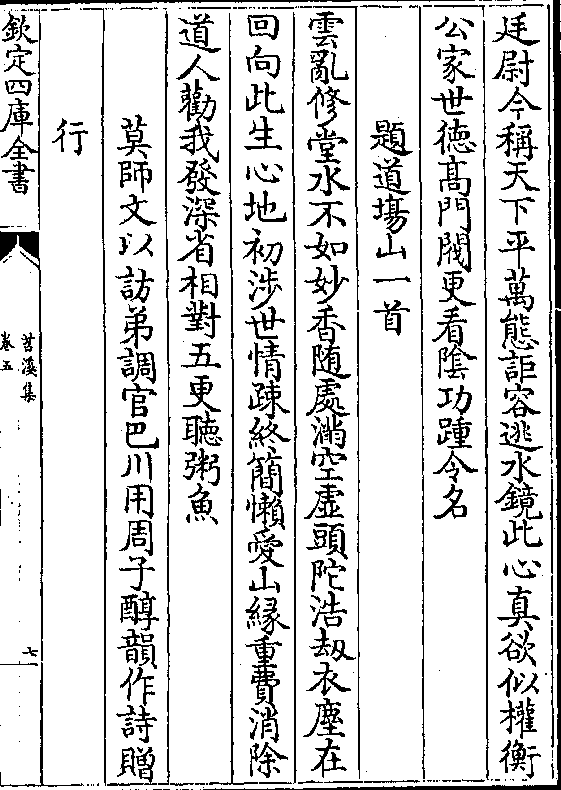 廷尉今稱天下平萬態詎容逃水鏡此心真欲似權衡
公家世徳髙門閥更看陰功踵令名
題道塲山一首
雲亂修堂水不如妙香随處滿空虛頭陀浩刼衣塵在
回向此生心地初渉世情疎終簡懶愛山縁重費消除
道人勸我發深省相對五更聽粥魚
莫師文以訪弟調官巴川用周子醇韻作詩贈
行
欽定四庫全書
苕溪集
卷五
七